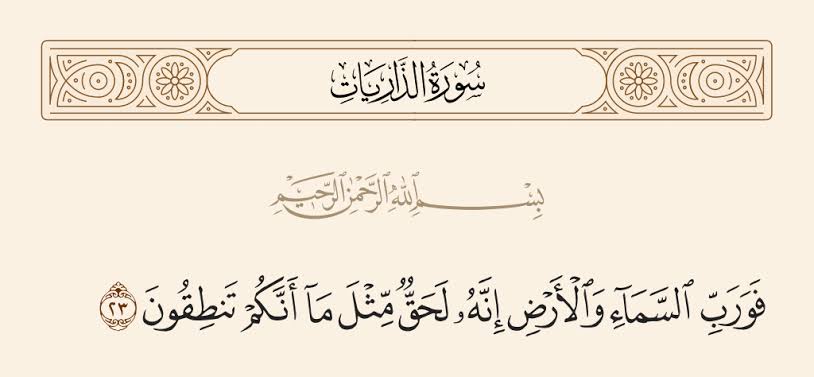 سُورَةُ الذَّارِيَاتِ
بِسْمِ ٱللَّهِ ٱلرَّحْمَٰنِ ٱلرَّحِيمِ
فَوَرَبِّ ٱلسَّمَآءِ وَٱلْأَرْضِ إِنَّهُۥ لَحَقٌّۭ مِّثْلَ مَآ أَنَّكُمْ تَنطِقُونَ ٢٣